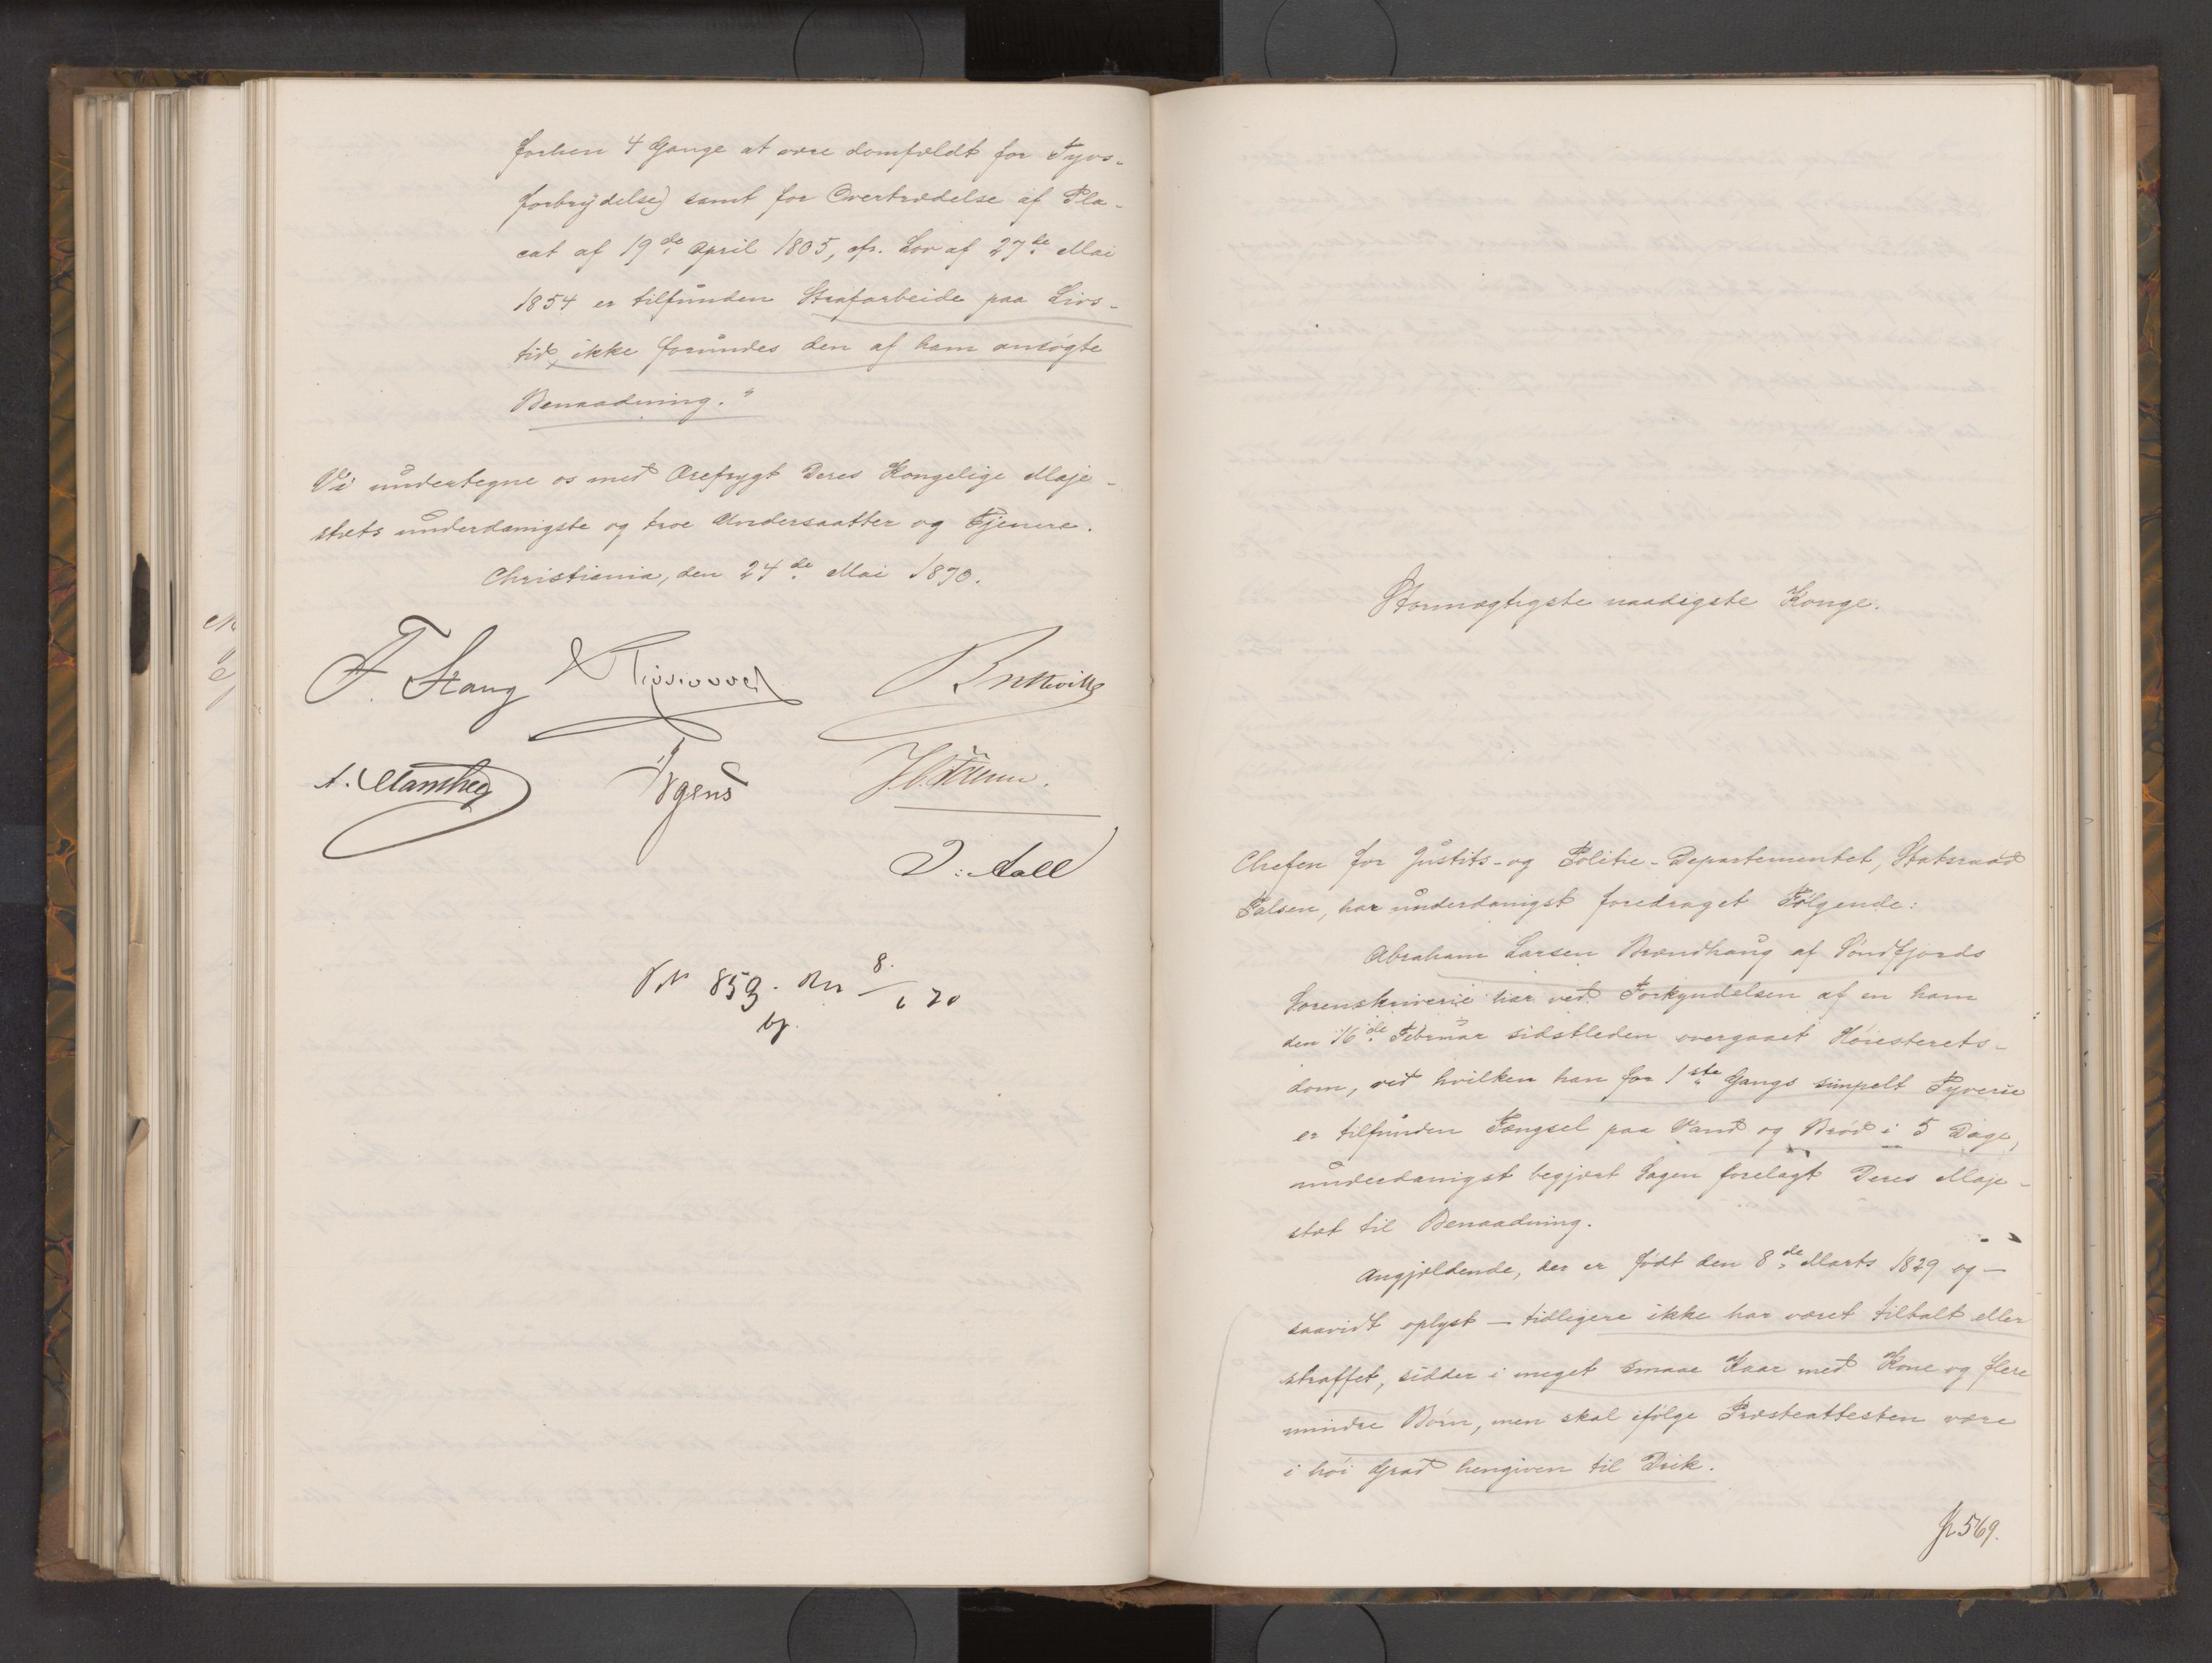 forhen 4 Gange at være domfældt for Tyvs-
forbrydelse) samt for Overtrædelse af Pla-
cat af 19de April 1805, cfr. Lov af 27de Mai
1854 er tilfunden Strafarbeide paa Livs-
tid, ikke forundes den af ham ansøgte
Benaadning."
Vi undertegne os med Ærefrygt Deres Kongelige Maje-
stæts underdanigste og troe Undersaatter og Tjenere.
Christiania, den 24de Mai 1870.
F. Stang
Irgens
J. Aall
No 859. 8.
6 70
Stormægtigste naadigste Konge.
Chefen for Justits- og Politie-Departementet, Statsraad
Falsen, har underdanigst foredraget Følgende:
Abraham Larsen Brændhaug af Søndfjords
Sorenskriverie har ved Forkyndelsen af en ham
den 16de Februar sidstleden overgaaet Høiesterets-
dom, ved hvilken han for 1ste Gangs simpelt Tyverie
er tilfunden Fængsel paa Vand og Brød i 5 Dage,
underdanigst begjært Sagen forelagt Deres Maje-
stæt til Benaadning.
Angjældende, der er født den 8de Marts 1829 og —
saavidt oplyst — tidligere ikke har været tiltalt eller
straffet, sidder i meget smaae Kaar med Kone og flere
mindre Børn, men skal ifølge Præsteattesten være
i høi Grad hengiven til Drik.
569.